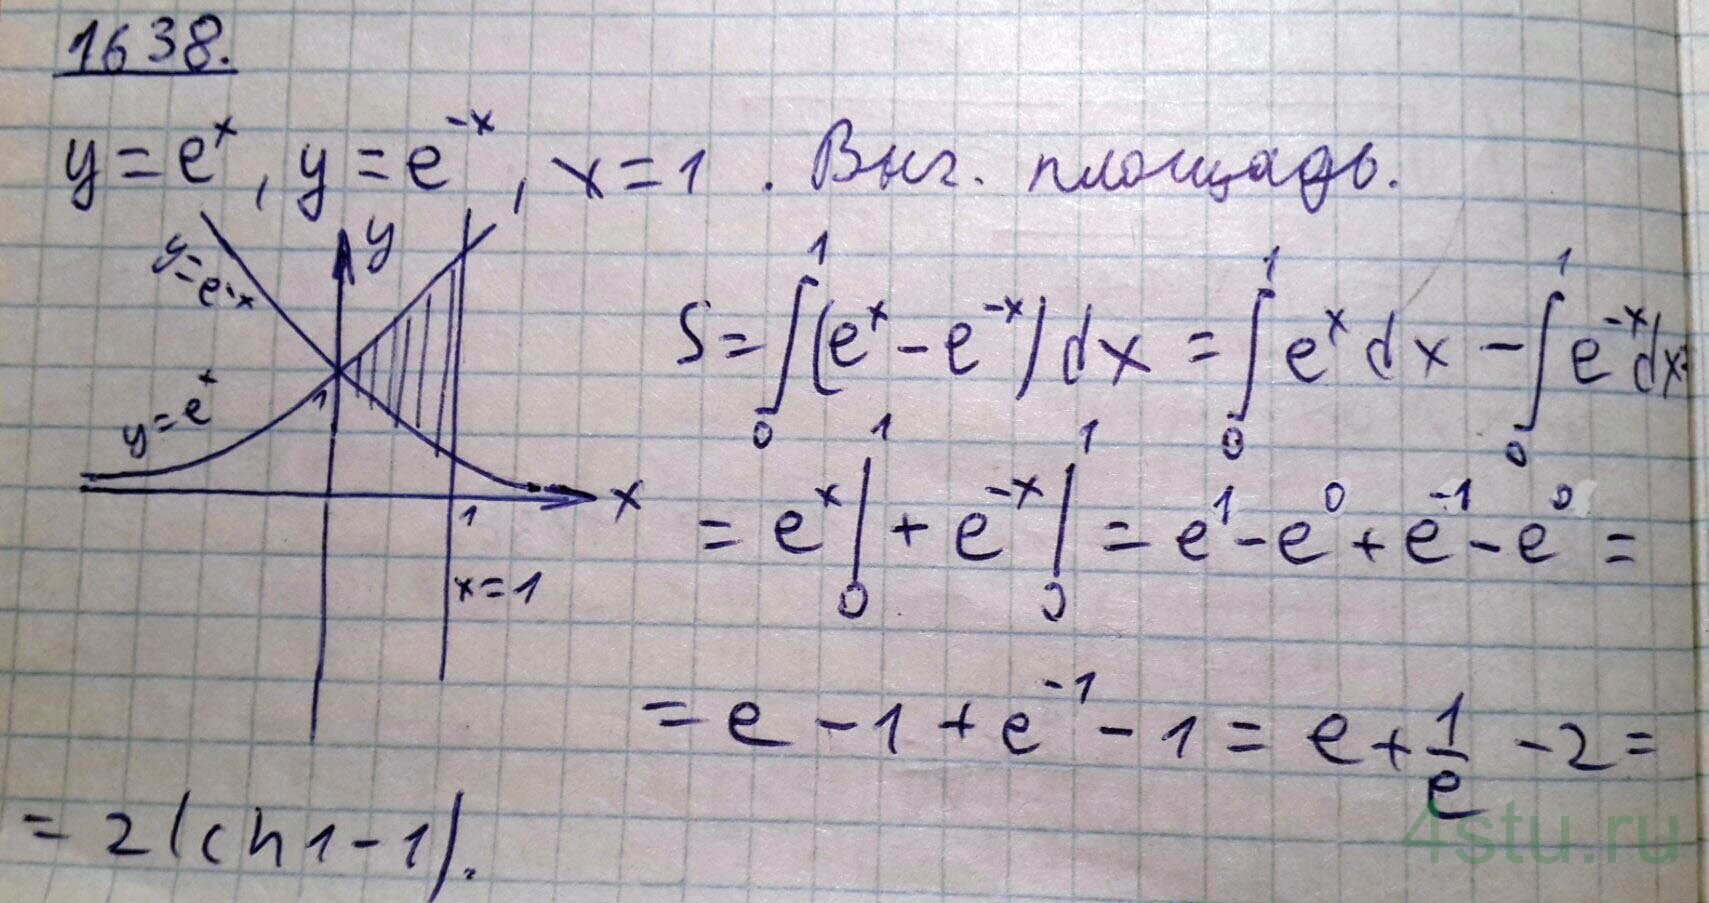 1638.
y = e^x, y = e^-x, x = 1. Выч. площадь.
y = e^-x
y
y = e^x
1
x
1
x = 1
S = ∫₀¹ (e^x - e^-x) dx = ∫₀¹ e^x dx - ∫₀¹ e^-x dx =
= e^x |₀¹ + e^-x |₀¹ = e^1 - e^0 + e^-1 - e^0 =
= e - 1 + e^-1 - 1 = e + 1/e - 2 =
= 2(ch1 - 1).
4stu.ru